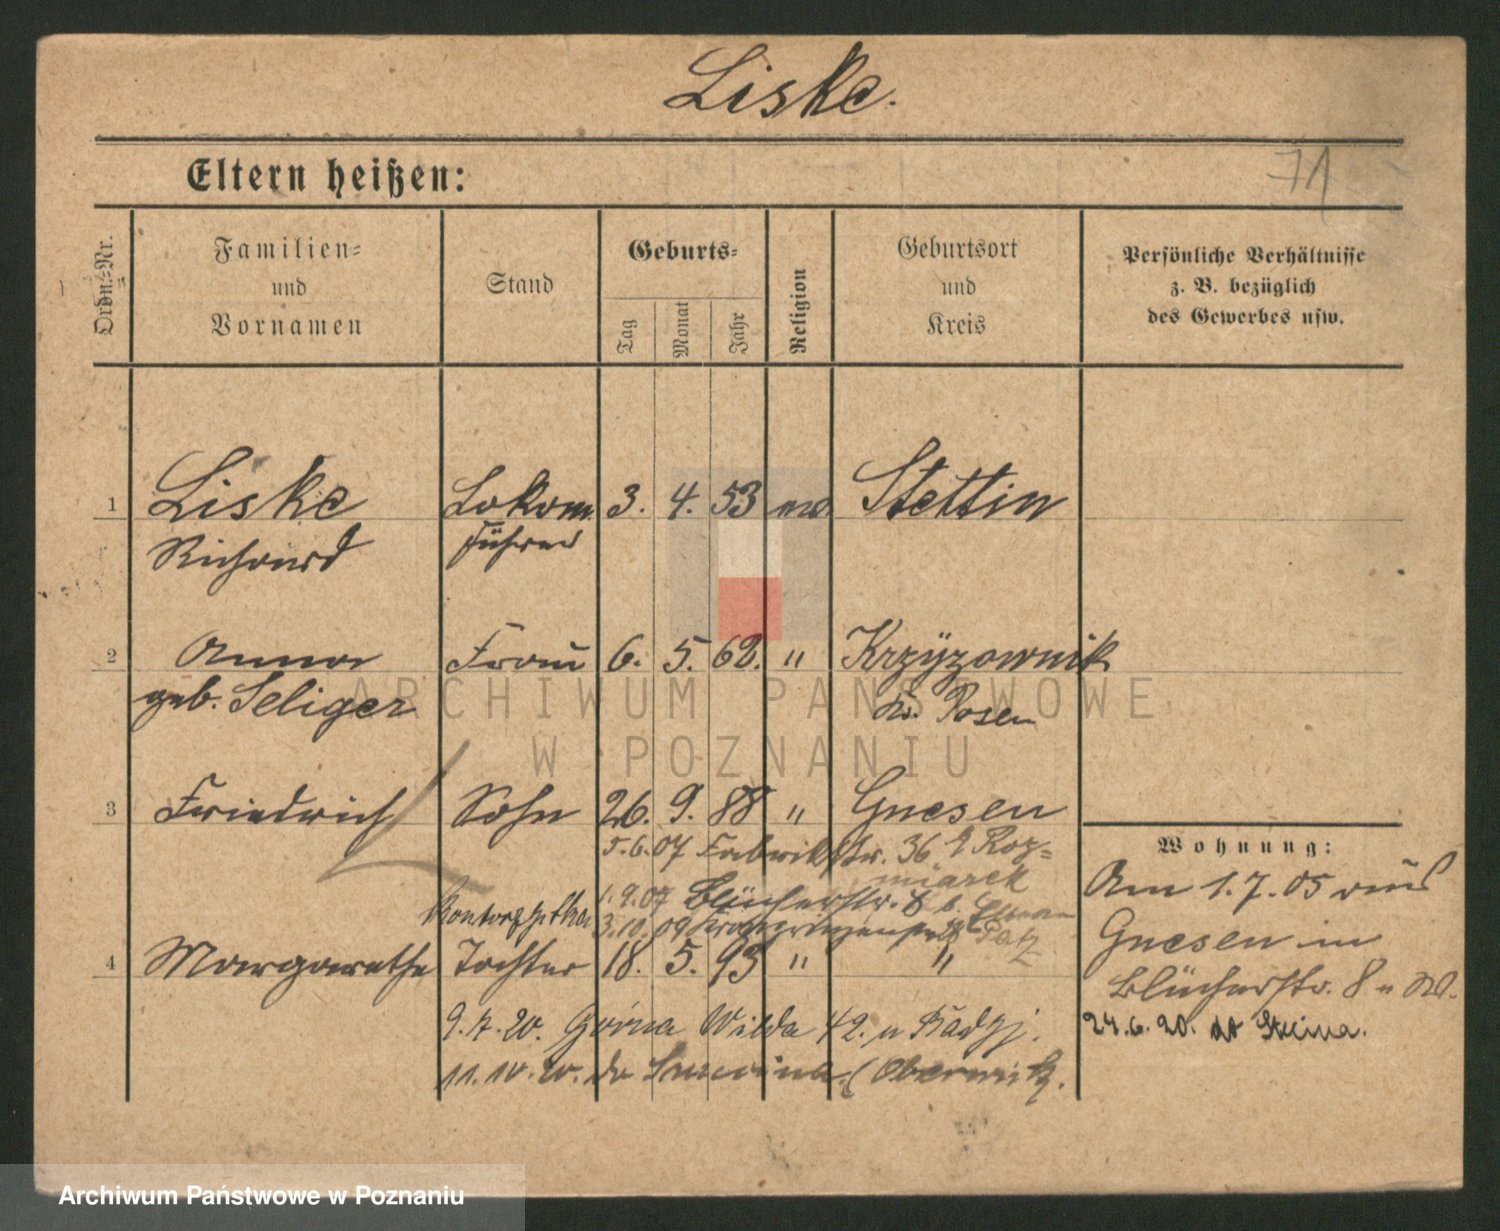 Liske.
71
Eltern heißen:
Ordn.-Nr.
Familien-
und
Vornamen
Stand
Geburts-
Tag
Monat
Jahr
Religion
Geburtsort
und
Kreis
Persönliche Verhältnisse
z. B. bezüglich
des Gewerbes usw.
1 Liske Lokom. 3. 4. 53 ev Stettin
Richard führer
2 Anna Frau 6. 5. 62. " Krzyzownik
geb. Seliger Kr. Posen
3 Friedrich Sohn 26. 9. 88 " Gnesen
5.6.07 Fabrikstr. 36
1.9.07 Blücherstr. 8 b. Eltern
3.10.09 Kronprinzenstr.
4 Margarethe Tochter 18. 5. 93 " "
9.7.20. Górna Wilda 42. u
11.10.20. do
Wohnung:
Am 1.7.05 aus
Gnesen in
Blücherstr. 8 u W.
24.6.20.
ARCHIWUM PAŃSTWOWE
W POZNANIU
Archiwum Państwowe w Poznaniu